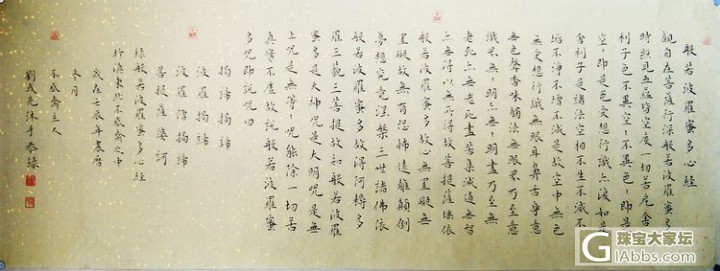 般若波羅蜜多心經
觀自在菩薩行深般若波羅蜜多
時照見五蘊皆空度一切苦厄舍
利子色不異空々不異色々即是
空々即是色受想行識亦復如是
舍利子是諸法空相不生不滅不
垢不淨不增不減是故空中無色
無受想行識無眼耳鼻舌身意
無色聲香味觸法無眼界乃至無意
識界無々明亦無々明盡乃至無
老死亦無老死盡無苦集滅道無智
亦無得以無所得故菩提薩埵依
般若波羅蜜多故心無罣礙無
罣礙故無有恐怖遠離顛倒
夢想究竟涅槃三世諸佛依
般若波羅蜜多故得阿耨多
羅三藐三菩提故知般若波羅
蜜多是大神咒是大明咒是無
上咒是無等々咒能除一切苦
真實不虛故說般若波羅蜜
多咒即說咒曰
揭諦揭諦
波羅揭諦
波羅僧揭諦
菩提薩婆訶
錄般若波羅蜜多心經
於滇東北不齋之中
歲在壬辰年農曆
冬月
不齋主人
劉沐手奉錄
珠宝大家坛
bbs.gemhome.cn